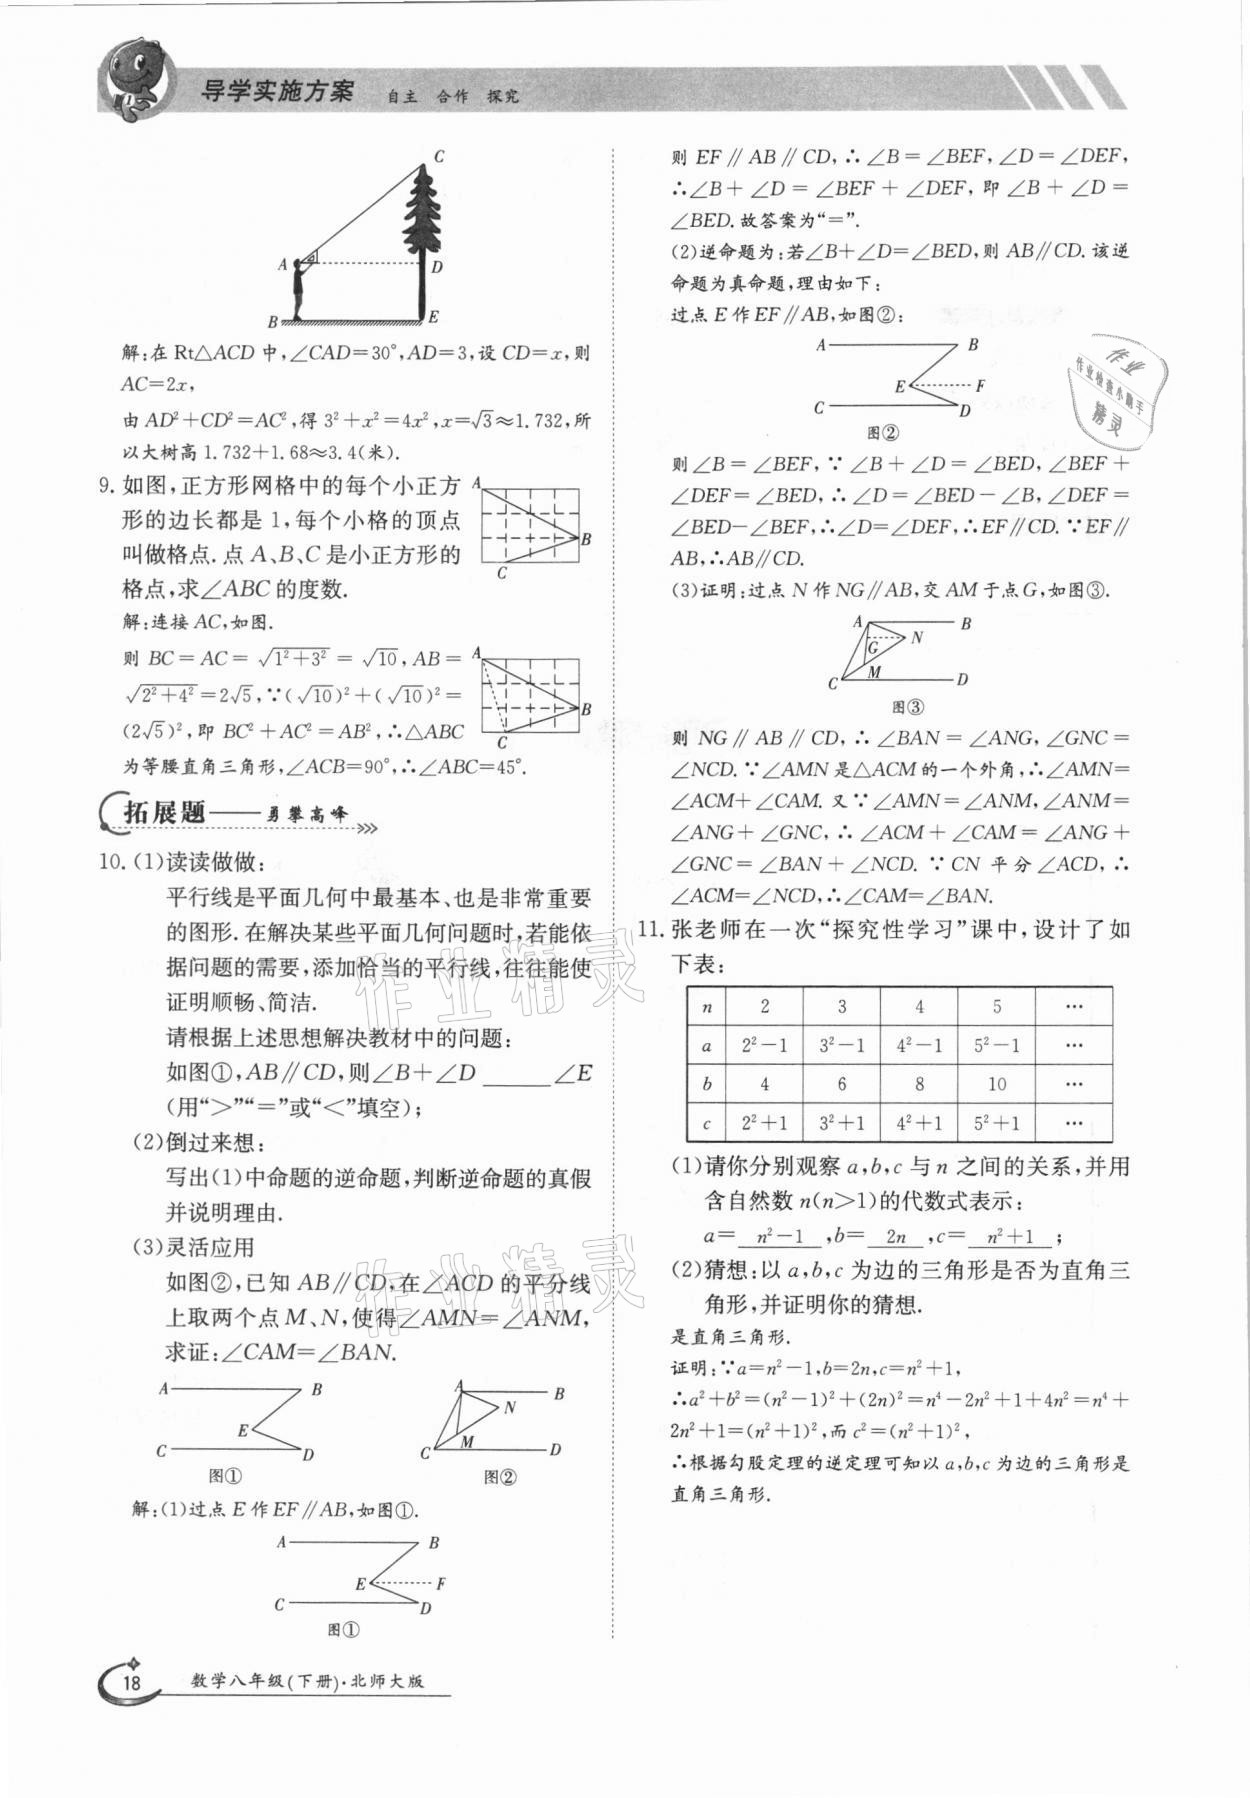 导学实施方案 自主 合作 探究
C
A
D
B
E
解:在Rt△ACD中,∠CAD=30°,AD=3,设CD=x,则
AC=2x,
由AD²+CD²=AC²,得3²+x²=4x²,x=√3≈1.732,所
以大树高1.732+1.68≈3.4(米).
9. 如图,正方形网格中的每个小正方
形的边长都是1,每个小格的顶点
叫做格点.点A、B、C是小正方形的
格点,求∠ABC的度数.
A
B
C
解:连接AC,如图.
则BC=AC=√(1²+3²)=√10,AB=
√(2²+4²)=2√5,∵(√10)²+(√10)²=
(2√5)²,即BC²+AC²=AB²,∴△ABC
为等腰直角三角形,∠ACB=90°,∴∠ABC=45°.
A
B
C
拓展题——勇攀高峰
10. (1)读读做做:
平行线是平面几何中最基本、也是非常重要
的图形.在解决某些平面几何问题时,若能依
据问题的需要,添加恰当的平行线,往往能使
证明顺畅、简洁.
请根据上述思想解决教材中的问题:
如图①,AB∥CD,则∠B+∠D ______ ∠E
(用“>”“=”或“<”填空);
(2)倒过来想:
写出(1)中命题的逆命题,判断逆命题的真假
并说明理由.
(3)灵活应用
如图②,已知AB∥CD,在∠ACD的平分线
上取两个点M、N,使得∠AMN=∠ANM,
求证:∠CAM=∠BAN.
A B
E
C D
图①
A B
N
M
C D
图②
解:(1)过点E作EF∥AB,如图①.
A B
E F
C D
图①
18 数学八年级(下册)·北师大版
则EF∥AB∥CD,∴∠B=∠BEF,∠D=∠DEF,
∴∠B+∠D=∠BEF+∠DEF,即∠B+∠D=
∠BED.故答案为“=”.
(2)逆命题为:若∠B+∠D=∠BED,则AB∥CD.该逆
命题为真命题,理由如下:
过点E作EF∥AB,如图②:
A B
E F
C D
图②
作业
作业检查小助手
精灵
则∠B=∠BEF,∵∠B+∠D=∠BED,∠BEF+
∠DEF=∠BED,∴∠D=∠BED-∠B,∠DEF=
∠BED-∠BEF,∴∠D=∠DEF,∴EF∥CD.∵EF∥
AB,∴AB∥CD.
(3)证明:过点N作NG∥AB,交AM于点G,如图③.
A B
N
G
M
C D
图③
则NG∥AB∥CD,∴∠BAN=∠ANG,∠GNC=
∠NCD.∵∠AMN是△ACM的一个外角,∴∠AMN=
∠ACM+∠CAM.又∵∠AMN=∠ANM,∠ANM=
∠ANG+∠GNC,∴∠ACM+∠CAM=∠ANG+
∠GNC=∠BAN+∠NCD.∵CN平分∠ACD,∴
∠ACM=∠NCD,∴∠CAM=∠BAN.
11. 张老师在一次“探究性学习”课中,设计了如
下表:
n 2 3 4 5 …
a 2²-1 3²-1 4²-1 5²-1 …
b 4 6 8 10 …
c 2²+1 3²+1 4²+1 5²+1 …
(1)请你分别观察a,b,c与n之间的关系,并用
含自然数n(n>1)的代数式表示:
a= n²-1 ,b= 2n ,c= n²+1 ;
(2)猜想:以a,b,c为边的三角形是否为直角三
角形,并证明你的猜想.
是直角三角形.
证明:∵a=n²-1,b=2n,c=n²+1,
∴a²+b²=(n²-1)²+(2n)²=n⁴-2n²+1+4n²=n⁴+
2n²+1=(n²+1)²,而c²=(n²+1)²,
∴根据勾股定理的逆定理可知以a,b,c为边的三角形是
直角三角形.
作业精灵
作业精灵